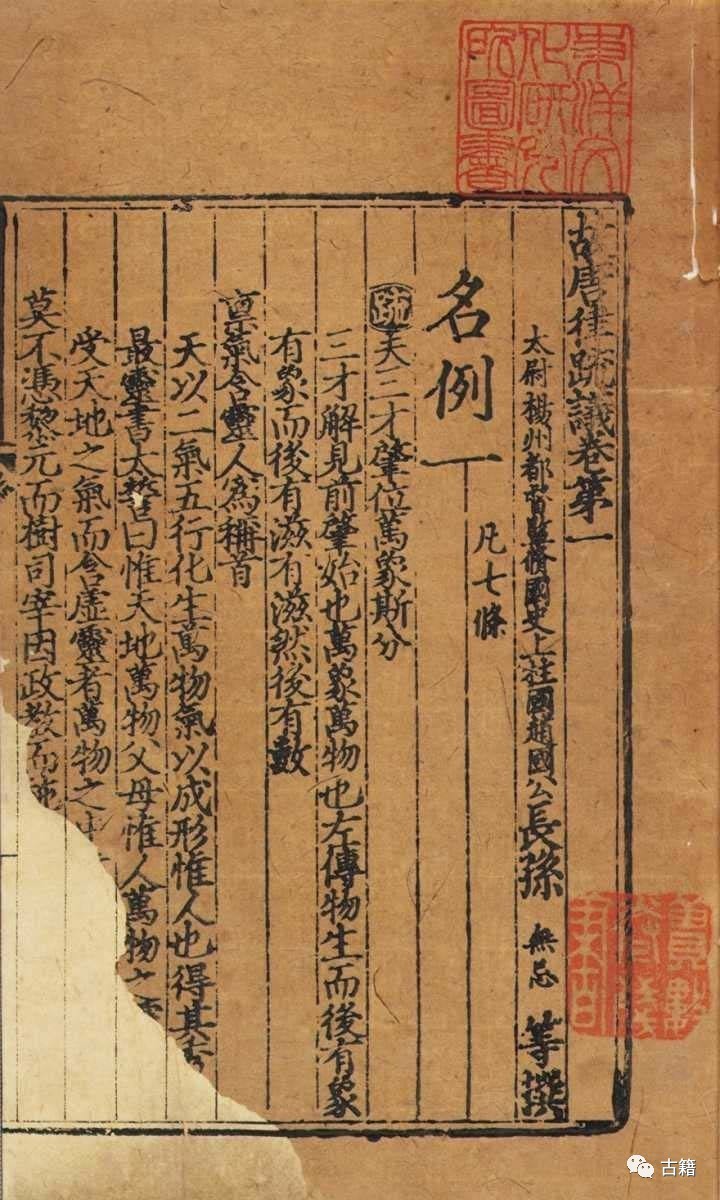 東洋文
化研究
所圖書
故唐律疏議卷第一
太尉楊州都督監脩國史上柱國趙國公長孫無忌等撰
凡七條
名例一
疏夫三才肇位萬象斯分
三才解見前肇始也萬象萬物也左傳物生而後有象
有象而後有滋有滋然後有數
稟氣含靈人爲稱首
天以二氣五行化生萬物氣以成形惟人也得其秀
最靈書太誓曰惟天地萬物父母惟人萬物之靈
受天地之氣而含虛靈者萬物之
莫不憑黎元而樹司宰因政教而施
古籍